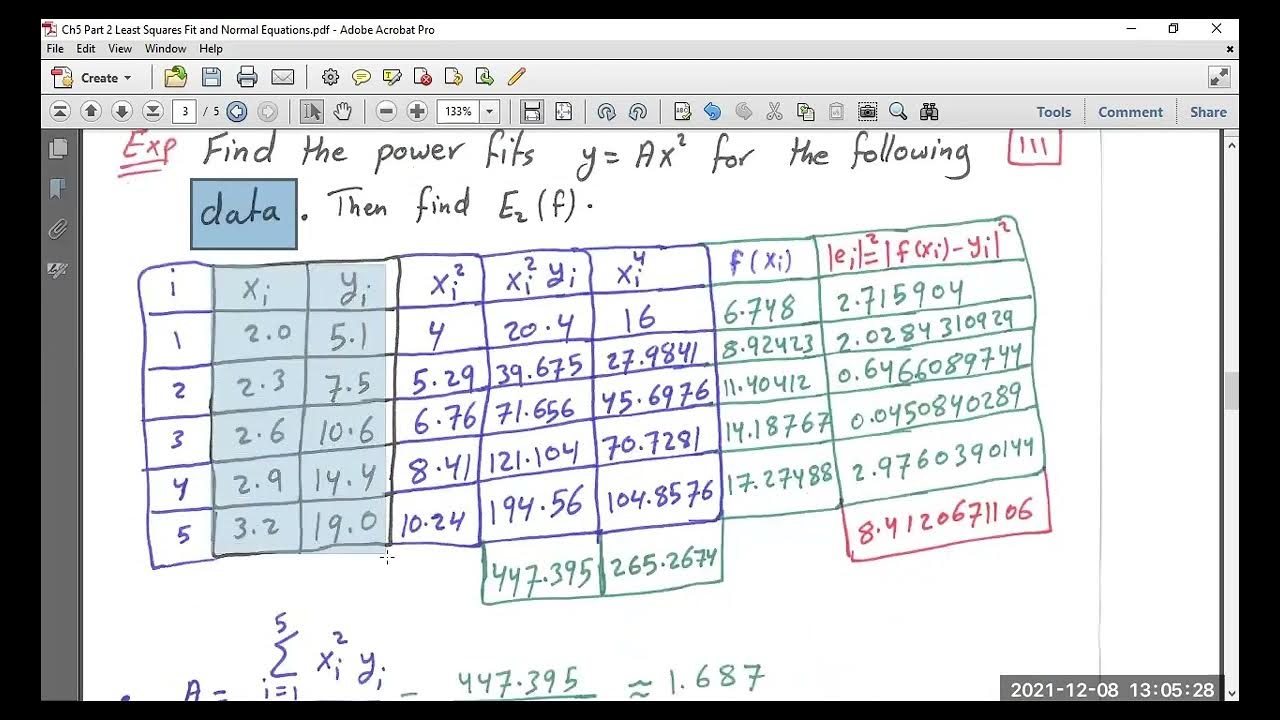 Ch5 Part 2 Least Squares Fit and Normal Equations.pdf - Adobe Acrobat Pro
File Edit View Window Help
Create
3 / 5 133% Tools Comment Share
Exp Find the power fits y = Ax² for the following 111
data. Then find E₂(f).
i xᵢ yᵢ xᵢ² xᵢ² yᵢ xᵢ⁴ f(xᵢ) |eᵢ|² = |f(xᵢ) - yᵢ|²
1 2.0 5.1 4 20.4 16 6.748 2.715904
2 2.3 7.5 5.29 39.675 27.9841 8.92423 2.0284310929
3 2.6 10.6 6.76 71.656 45.6976 11.40412 0.6466089744
4 2.9 14.4 8.41 121.104 70.7281 14.18767 0.0450840289
5 3.2 19.0 10.24 194.56 104.8576 17.27488 2.9760390144
447.395 265.2674 8.4120671106
5
∑ xᵢ² yᵢ
i=1
A = = 447.395 ≈ 1.687
2021-12-08 13:05:28